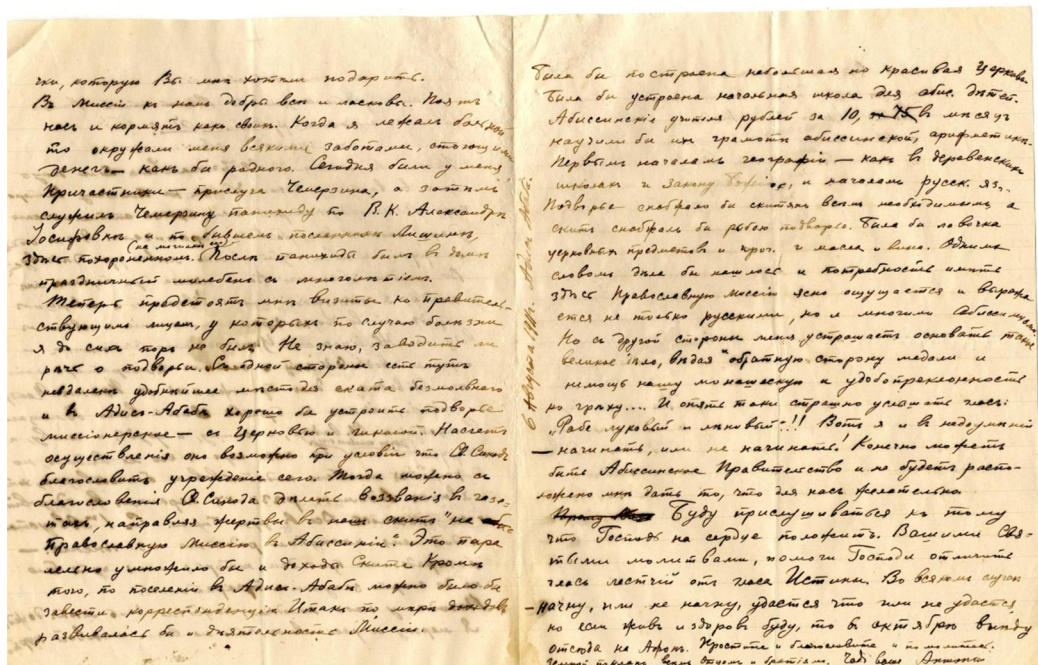 чки, которую Вы мнѣ хотѣли подарить.
Въ Миссіи къ намъ добры всѣ и ласковы. Поятъ
насъ и кормятъ какъ своихъ. Когда я лежалъ больной
то окружали меня всякими заботами, стоющими
денегъ — какъ бы родного. Сегодня были у меня
причастники — прислуга Чемерзина, а затѣмъ
служилъ Чемерзину панихиду по В.К. Александрѣ
Іосифовнѣ и по бывшемъ посланникѣ Лишинѣ,
здѣсь похороненномъ. (на могилѣ его) Послѣ панихиды былъ въ домѣ
праздничный молебенъ съ многолѣтіемъ.
Теперь предстоятъ мнѣ визиты ко правитель-
ствующимъ лицамъ, у которыхъ по случаю болѣзни
я до сихъ поръ не былъ. Не знаю, заводить ли
рѣчь о подворьи. Съ одной стороны есть тутъ
недалеко удобнѣйшее мѣсто для скита безмолвнаго
и въ Адисъ-Абабѣ хорошо бы устроить подворье
миссіонерское — съ Церковью и школой. Насчетъ
осуществленія оно возможно при условіи что Св. Синодъ
благословитъ учрежденіе сего. Тогда можно съ
благословенія Св. Синода дѣлать воззванія въ газе-
тахъ, направляя жертвы въ нашъ скитъ "на
Православную Миссію въ Абиссиніи". Это пара
лельно умножило бы и доходы Скита Кромѣ
того, по поселеніи въ Адисъ-Абабѣ можно было бы
завести корреспонденцію Итакъ по мѣрѣ доходовъ
развивалась бы и дѣятельность Миссіи.
6 Августа 1911. Адисъ Абаба.
Была бы построена небольшая но красивая Церковь.
Была бы устроена начальная школа для абис. дѣтей.
Абиссинскіе учителя рублей за 10, 15 въ мѣсяцъ
научили бы ихъ грамотѣ абиссинской, арифметикѣ
Первымъ началамъ географіи — какъ въ деревенскихъ
школахъ и закону Божію, и началамъ русск. яз.
Подворье снабжало бы скитянъ всѣмъ необходимымъ, а
скитъ снабжалъ бы рыбою подворье. Была бы лавочка
церковныхъ предметовъ и проч. и масла и вина. Однимъ
словомъ дѣла бы нашлось и потребность имѣть
здѣсь Православную Миссію ясно ощущается и выража
ется не только русскими, но и многими Абиссинцами
Но съ другой стороны меня устрашаетъ основать такое
великое дѣло, вѣдая "обратную сторону медали и
немощь нашу монашескую и удобопреклонность
ко грѣху.... И опять таки страшно услышать гласъ:
„Рабе лукавый и лѣнивый"!!! Вотъ я и въ недоумѣніи
— начинать, или не начинать! Конечно можетъ
быть Абиссинское Правительство и не будетъ распо-
ложено мнѣ дать то, что для насъ желательно.
Буду прислушиваться къ тому
что Господь на сердце положитъ. Вашими Свя-
тыми молитвами, помоги Господи отличить
гласъ лестчій отъ гласа Истины. Во всякомъ случаѣ
— начну, или не начну, удастся что или не удастся,
но если живъ и здоровъ буду, то въ октябрѣ выѣду
отсюда на Аѳонъ. Простите и благословите и помолитесь.
Земной поклонъ всѣмъ отцамъ и братіямъ. Чадо ваше Антоній